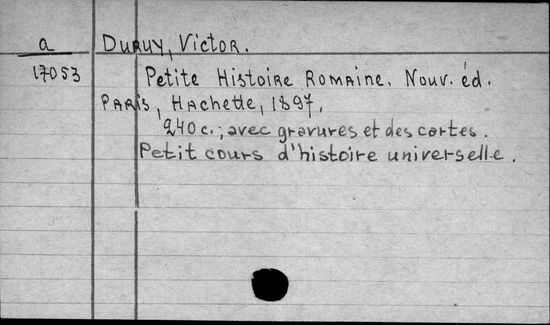 a Duruy, Victor.
17053 Petite Histoire Romaine. Nouv. éd.
Paris, Hachette, 1897.
240 c.; avec gravures et des cartes.
Petit cours d'histoire universelle.